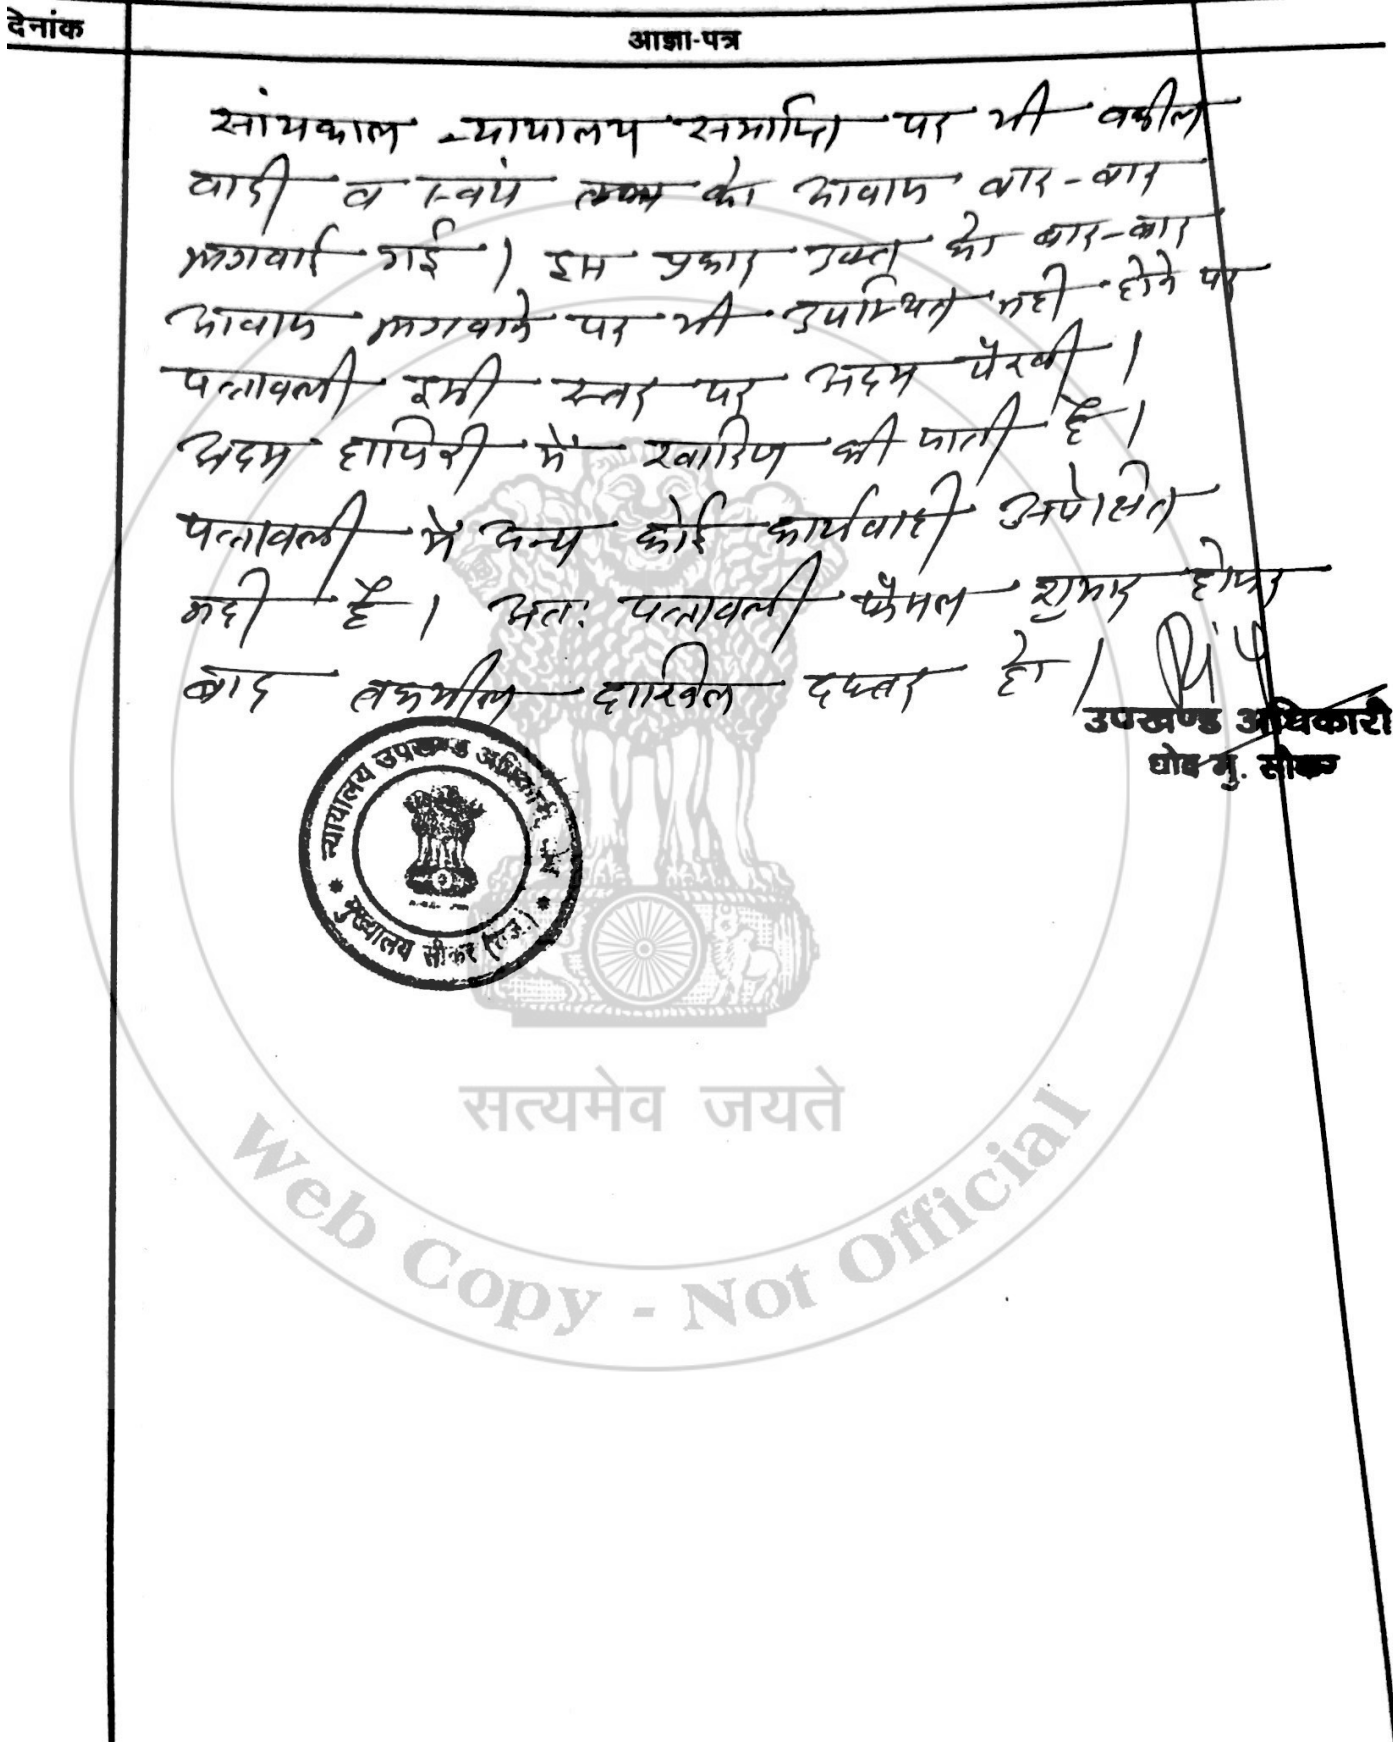 देनांक
आज्ञा-पत्र
सांयकाल न्यायालय समाप्ति पर भी वकील
वादी व स्वयं को आवाज बार-बार
लगवाई गई । इस प्रकार उक्त को बार-बार
आवाज लगवाने पर भी उपस्थित नही होने पर
पत्रावली इसी स्तर पर अदम पैरवी ।
अदम हाजिरी में खारिज की जाती है ।
पत्रावली मे अन्य कोई कार्यवाही अपेक्षित
नही है । अतः पत्रावली फैसल शुमार होकर
बाद तकमील दाखिल दफ्तर हो ।
उपखण्ड अधिकारी
धोद मु. सीकर
न्यायालय उपखण्ड अधिकारी
मुख्यालय सीकर (राज.)
सत्यमेव जयते
Web Copy - Not Official